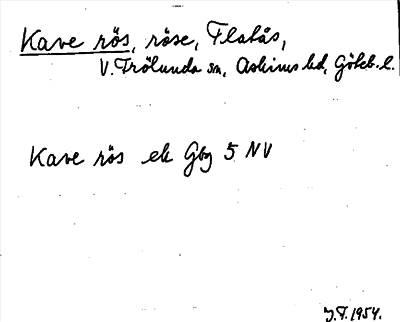 Kave rös, röse, Flatås,
V. Frölunda sn, Askims hd, Göteb. l.
Kave rös ek Gbg 5 NV
J.F. 1954.